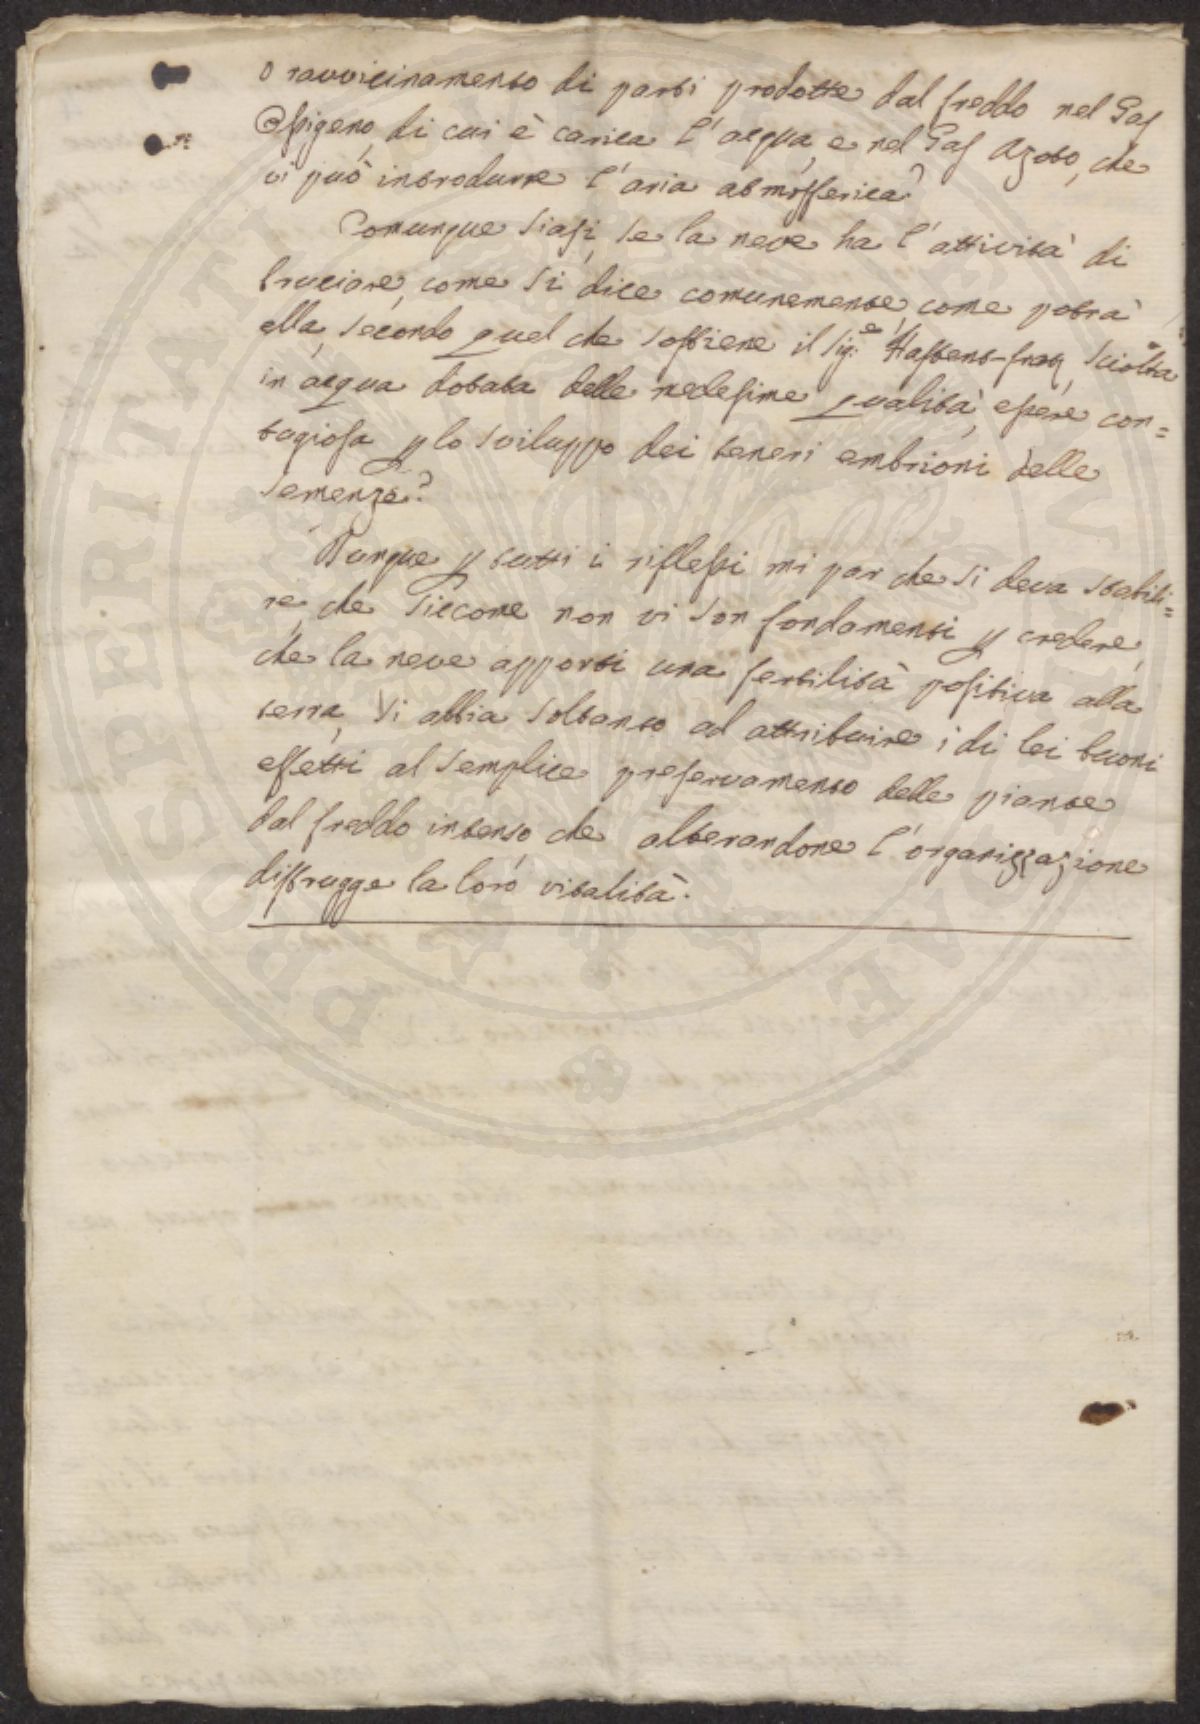 o ravvicinamento di parti prodotte dal freddo nel Gas
Ossigeno, di cui è carica l'acqua, e nel Gas Azoto, che
vi può introdurre l'aria atmosferica?
Comunque siasi, se la neve ha l'attività di
bruciare, come si dice comunemente, come potrà
ella, secondo quel che sostiene il Sig.e Hassens-fratz, sciolta
in acqua dotata delle medesime qualità, essere con=
tagiosa p lo sviluppo dei teneri embrioni delle
semenze?
Dunque p tutti i riflessi mi par che si deva stabili=
re, che siccome non vi son fondamenti p credere,
che la neve apporti una fertilità positiva alla
terra, si abbia soltanto ad attribuire i di lei buoni
effetti al semplice preservamento delle piante
dal freddo intenso che alterandone l'organizzazione
distrugge la loro vitalità.
PROSPERITATI